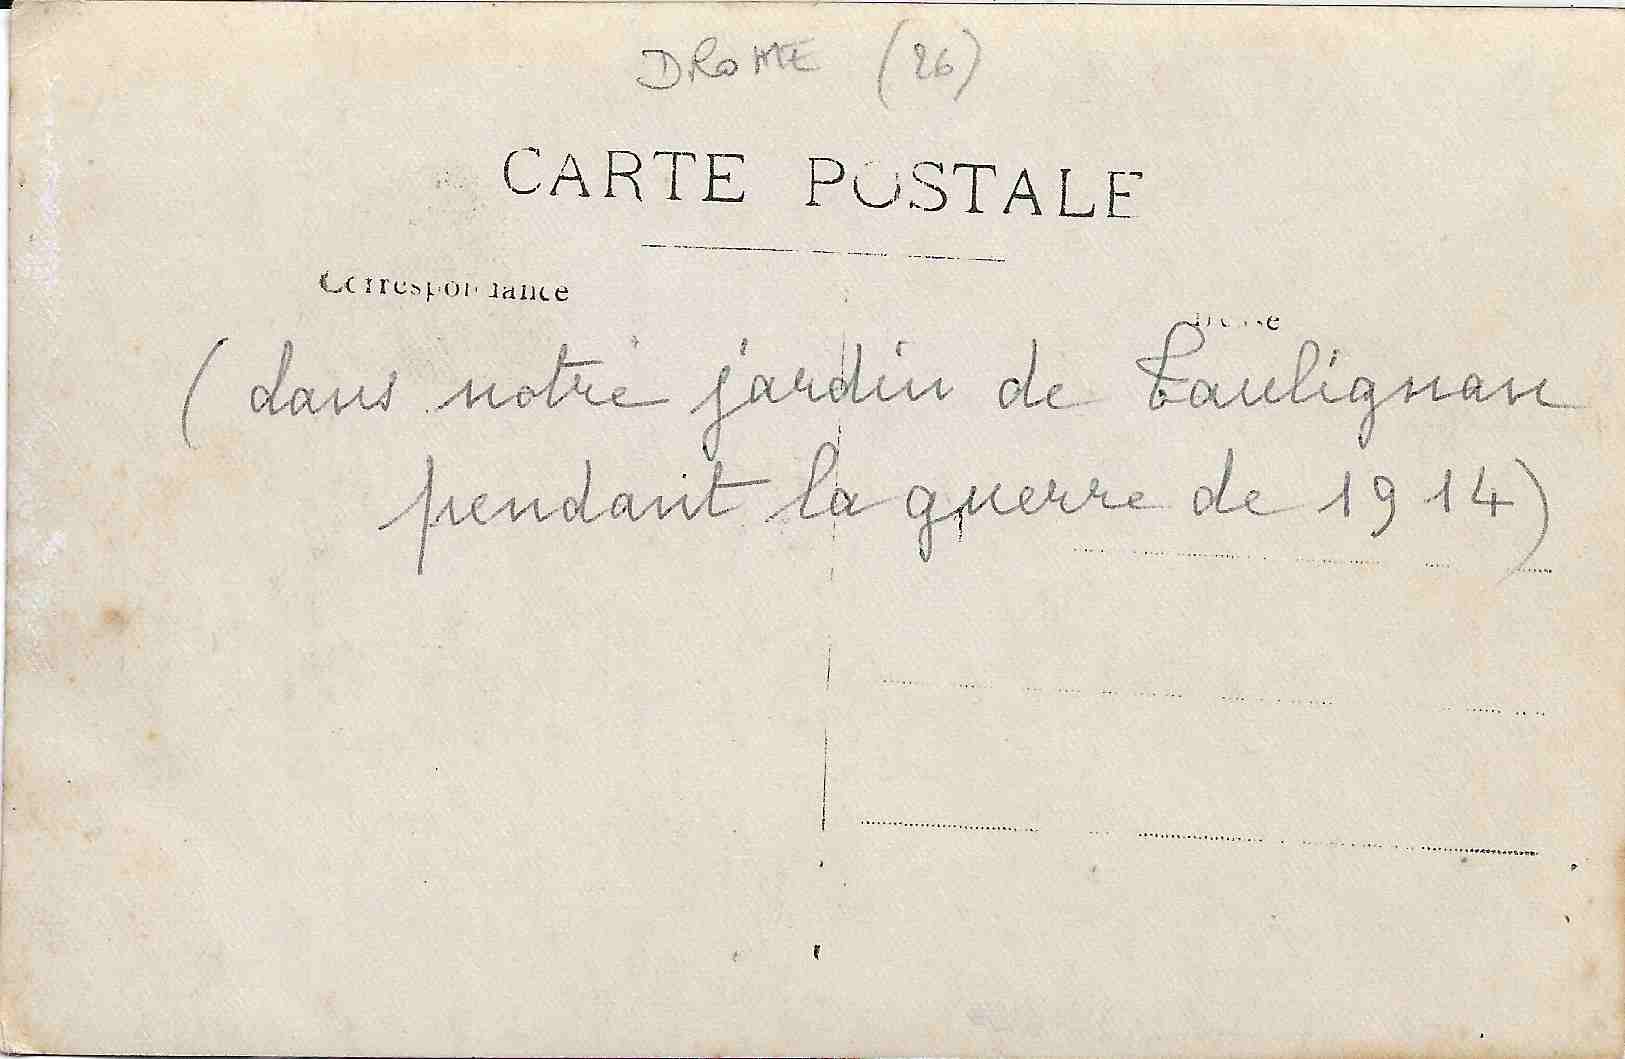 DROME (26)
CARTE POSTALE
Correspondance
(dans notre jardin de Taulignan
pendant la guerre de 1914)